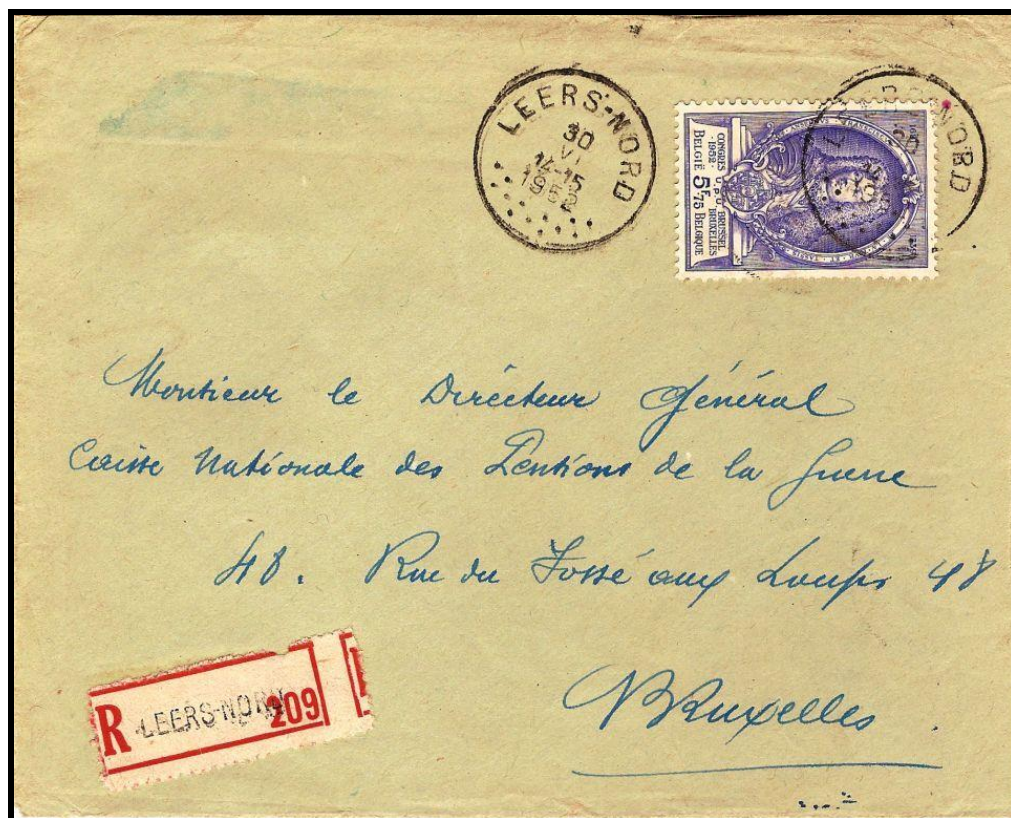 LEERS-NORD
30
VI
14-15
1952
CONGRES U.P.U BRUSSEL
1952 BRUXELLES
BELGIE 5F.75 BELGIQUE
Monsieur le Directeur Général
Caisse Nationale des Pensions de la Guerre
48. Rue du Fossé aux Loups 48
Bruxelles.
R LEERS-NORD 209